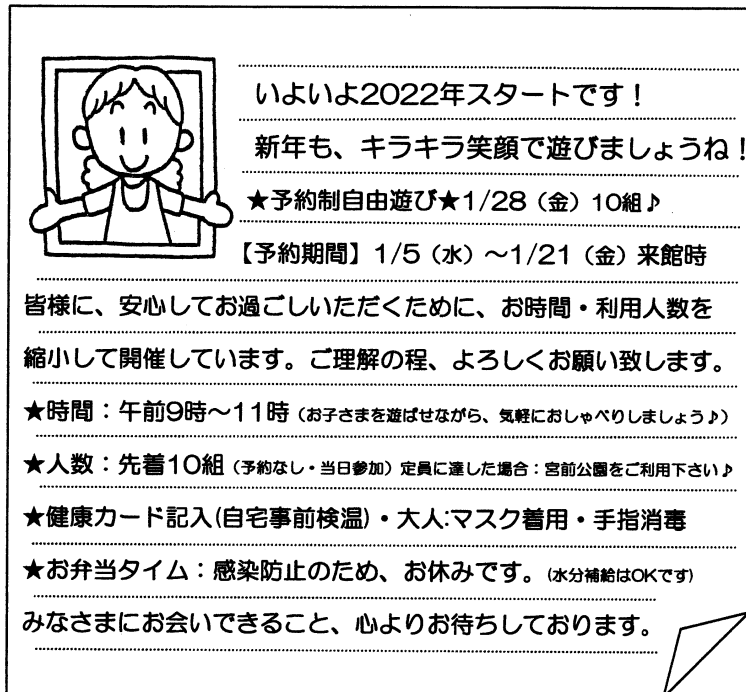 いよいよ2022年スタートです！
新年も、キラキラ笑顔で遊びましょうね！
★予約制自由遊び★1/28（金）10組♪
【予約期間】1/5（水）～1/21（金）来館時
皆様に、安心してお過ごしいただくために、お時間・利用人数を
縮小して開催しています。ご理解の程、よろしくお願い致します。
★時間：午前9時～11時（お子さまを遊ばせながら、気軽におしゃべりしましょう♪）
★人数：先着10組（予約なし・当日参加）定員に達した場合：宮前公園をご利用下さい♪
★健康カード記入(自宅事前検温)・大人:マスク着用・手指消毒
★お弁当タイム：感染防止のため、お休みです。(水分補給はOKです)
みなさまにお会いできること、心よりお待ちしております。